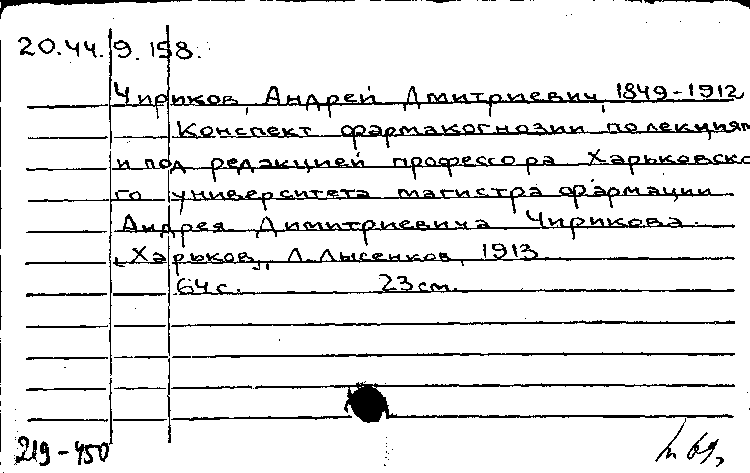 20.44.9.158.
Чириков, Андрей Дмитриевич, 1849-1912
Конспект фармакогнозии по лекциям
и под редакцией профессора Харьковско
го университета магистра фармации
Андрея Димитриевича Чирикова.
"Харьков", Л. Лысенков, 1913.
64 с. 23 см.
219-450